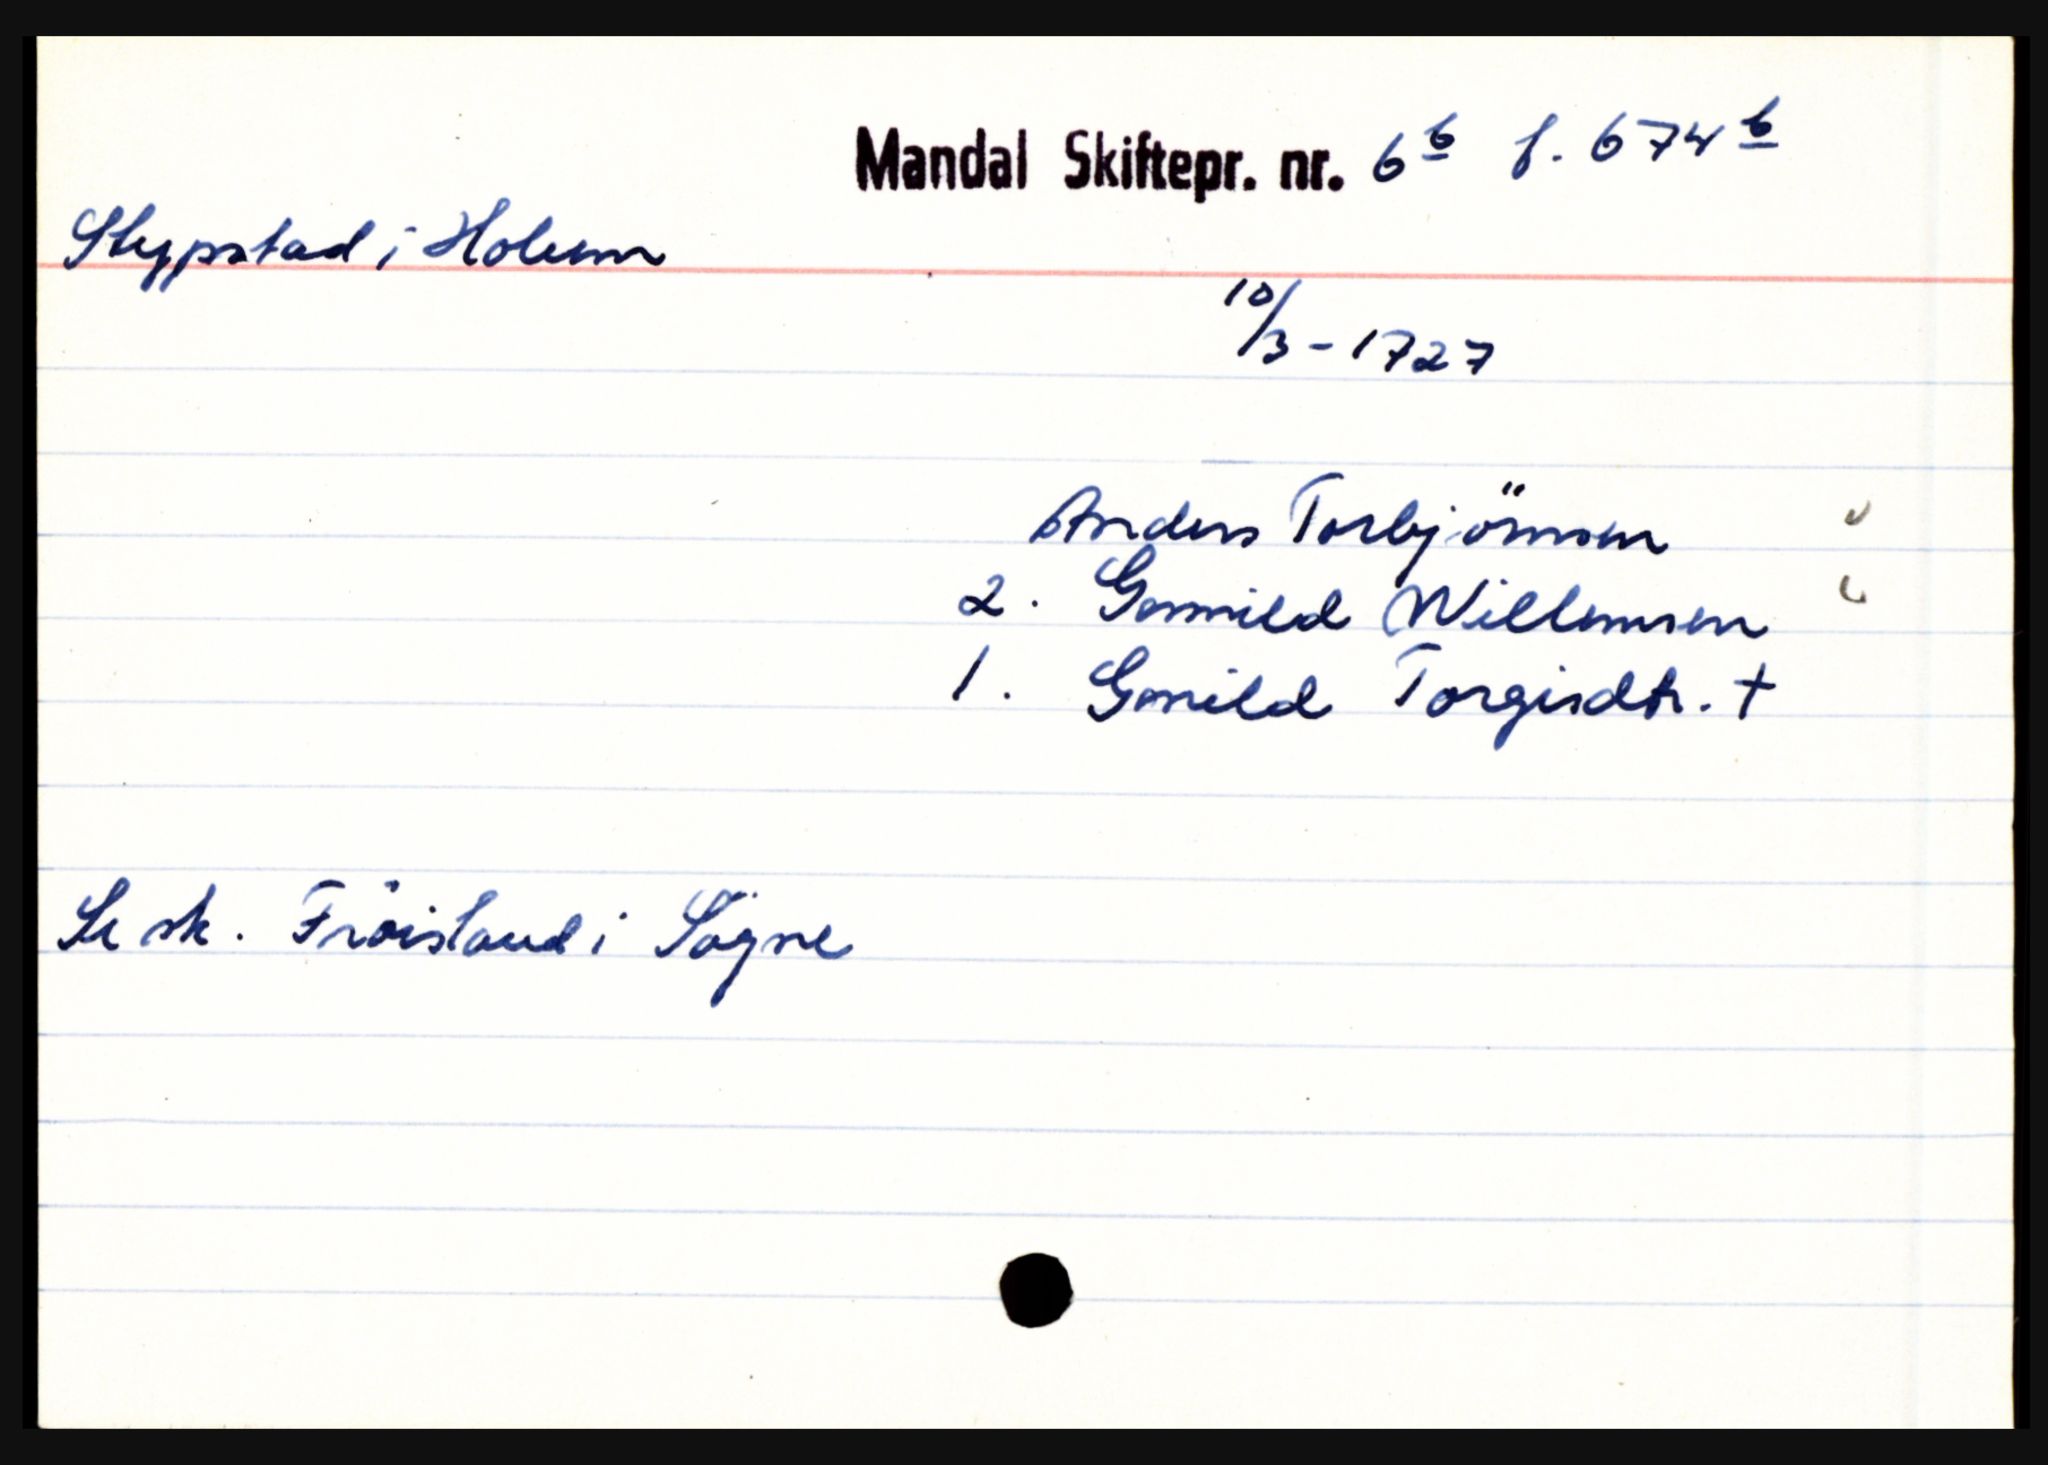 Mandal Skiftepr. nr. 6b f. 674b
Slypstad i Holum
10/3 - 1727
Anders Torbjörnsen
2. Gunnild Willumsen
1. Gunild Torgisdtr. +
Se sk. Fröisland i Sögne